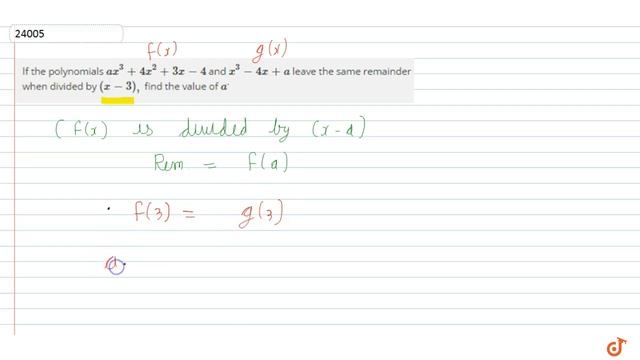 24005
f(x) g(x)
If the polynomials ax³ + 4x² + 3x − 4 and x³ − 4x + a leave the same remainder
when divided by (x − 3), find the value of a·
( f(x) is divided by (x-a)
Rem = f(a)
· f(3) = g(3)
a·